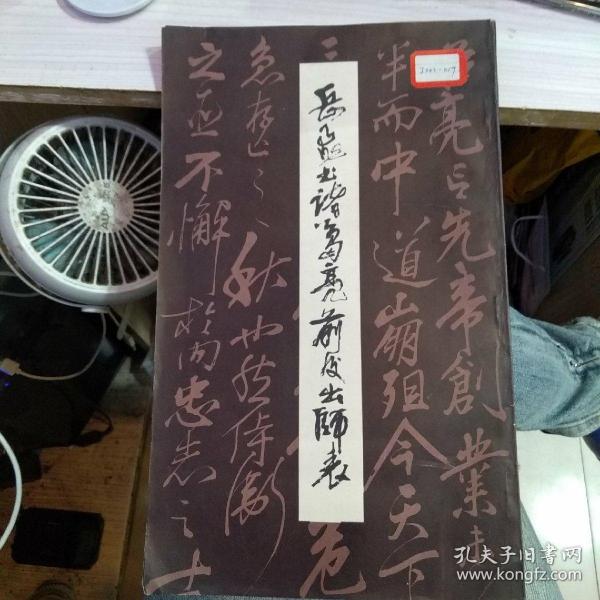 岳飞书诸葛亮前后出师表
亮言先帝創業
半而中道崩殂今天下
三
危
急存亡之
秋也然侍衛
之臣不懈於內忠志之士
孔夫子旧书网
www.kongfz.com